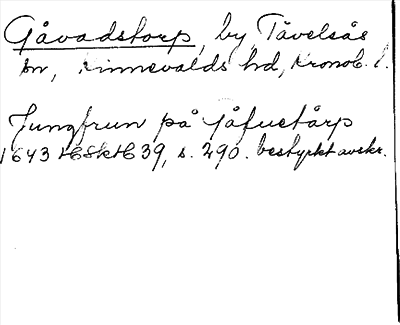 Gåvadstorp, by Tävelsås
sn, Kinnevalds hd, Kronob. l.
Jungfrun på Jåfuetårp
1643 HSktH 39, s. 290. bestyrkt avskr.